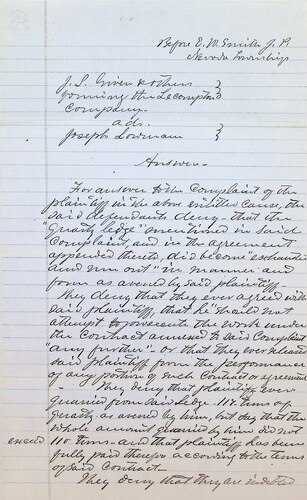 Before E. M. Smith J. P.
Nevada Township
J. S. Given & others }
forming the Lecompton }
Company. }
ads.
Joseph Lowman }
Answer -
For answer to the Complaint of the
plaintiff in the above entitled cause, the
said defendants deny - that the
quartz ledge "mentioned in said
Complaint, and in the agreement
appended thereto, did become "exhausted
and run out" in manner and
form as avered by said plaintiff -
They deny that they ever agreed with
said plaintiff, that he should not
attempt to prosecute the work under
the Contract annexed to said Complaint
"any further" - or that they ever released
said plaintiff from the performance
of any portion of such Contract or agreement
- They deny that plaintiff ever
quarried from said ledge 114 tons of
quartz as avered by him, but say that the
whole amount quarried by him did not
exceed 110 tons - and that plaintiff has been
fully paid therefor according to the terms
of said Contract.
They deny that they are indebted